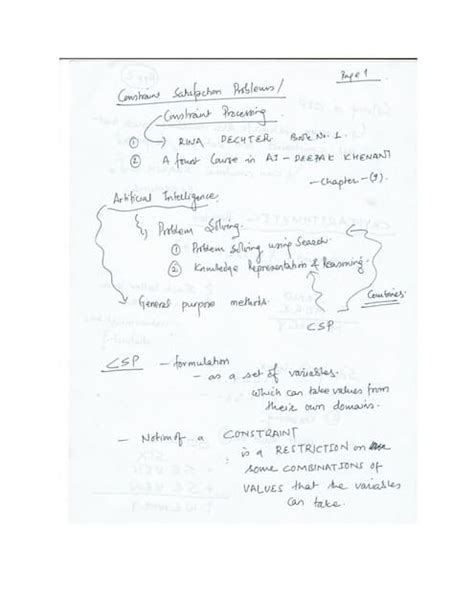 Page 1
Constraint Satisfaction Problems/
Constraint Processing
① RINA DECHTER Book No. 1.
② A first Course in AI - DEEPAK KHEMANI
- Chapter - (9).
Artificial Intelligence
Problem Solving.
① Problem Solving using Search
② Knowledge Representation & Reasoning.
General purpose methods
Combines
CSP
CSP - formulation
- as a set of variables.
which can take values from
their own domain.
- Notion of a CONSTRAINT
is a RESTRICTION on
some COMBINATIONS OF
VALUES that the variables
can take.